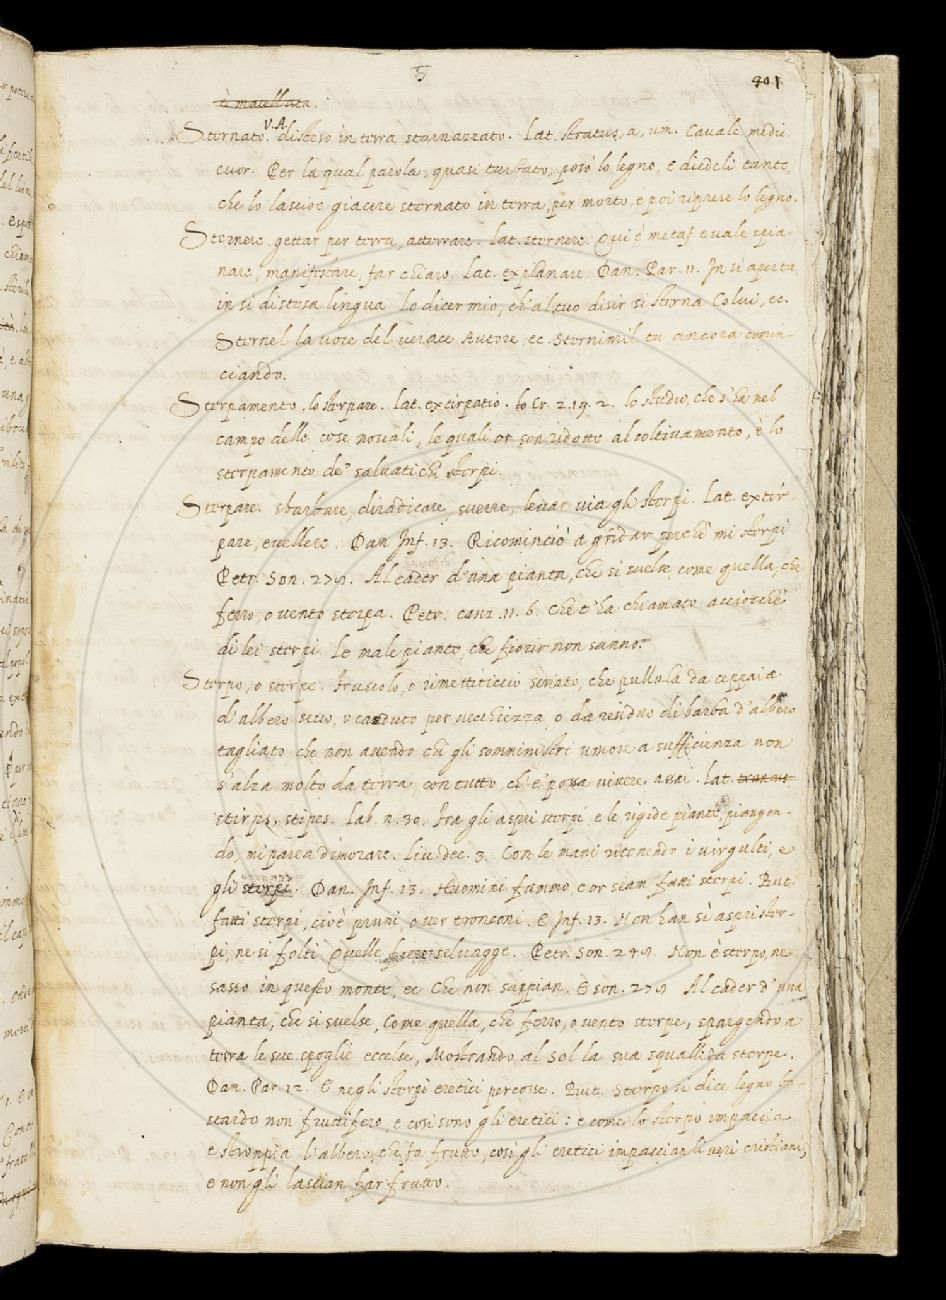 S
401
è macellata.
Sternato V.A. disteso in terra starnazzato. Lat. stratus, a, um. Cavalc. medic.
cuor. Per la qual parola, quasi turbato, posò lo legno, e diedeli tanto,
che lo lasciò giacere sternato in terra, per morto, e poi riprese lo legno.
Sternere. gettar per terra, atterrare. Lat. sternere. Qui è metaf. e vale spia-
nare, manifestare, far chiaro. Lat. explanare. Dan. Par. 11. In sì aperta
in sì distesa lingua lo dicer mio, ch'al tuo disir si sterna Colui, ec.
Sternel la voce del verace Autore, ec. Sternimil tu ancora comin-
ciando.
Sterpamento. lo sterpare. Lat. extirpatio. to Cr. 2. 19. 2. lo studio, che s'ha nel
campo delle cose novali, le quali or son ridotte al coltivamento, è lo
sterpamento de' salvatichi sterpi.
Sterpare. sbarbare, diradicare, sverre, levar via gli sterpi. Lat. extir-
pare, evellere. Dan Inf. 13. Ricominciò a gridar perchè mi sterpi
Petr. Son. 279. Al cader d'una pianta, che si svelse, come quella, che
ferro, o vento sterpa. Petr. canz. 11. 6. Che t'ha chiamato acciocchè
di lei sterpi. Le male piante, che fiorir non sanno.
Sterpo, o sterpe. Fruscolo, o rimettiticcio stentato, che pullula da ceppaia
d'albero secco, o caduto per vecchiezza, o da residuo di barba d'albero
tagliato, che non avendo chi gli somministri umore a sufficienza non
s'alza molto da terra, con tutto, ch'e' possa vivere assai. Lat.
stirps, stipes. Lab. n. 30. Fra gli aspri sterpi, e le rigide piante, piangen-
do, mi parea dimorare. Liv. dec. 3. Con le mani ritenendo i virgulti, e
gli sterpi. Dan. Inf. 13. Huomini fummo, e or siam fatti sterpi. But.
fatti sterpi, cioè pruni, over tronconi. E Inf. 13. Non han sì aspri ster-
pi, ne si folti Quelle fiere selvagge. Petr. Son. 249. Non è sterpo, ne
sasso in questo monte, ec Che non sappian. E son. 279 Al cader d'una
pianta, che si svelse, Come quella, che ferro, o vento sterpe, spargendo a
terra le sue spoglie eccelse, Mostrando al Sol la sua squallida sterpe.
Dan. Par. 12. E negli sterpi eretici percosse. But. Sterpo si dice legno ba-
stardo non fruttifero, e così sono gli eretici: e come lo sterpo impaccia
e stroppia l'albero, che fa frutto, così gli eretici impacciano li veri cristiani,
e non gli lascian far frutto.